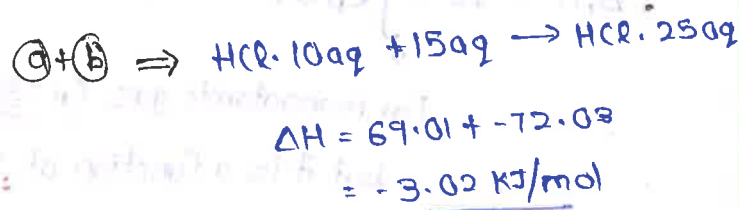 ⓐ+ⓑ ⇒ HCl. 10aq + 15aq → HCl. 25aq
ΔH = 69.01 + -72.03
= -3.02 KJ/mol